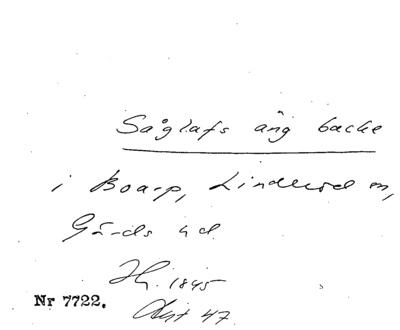 Såglafs äng backe
i Boarp, Linderöd sn,
Gärds hd
1845
Nr 7722.
List 47